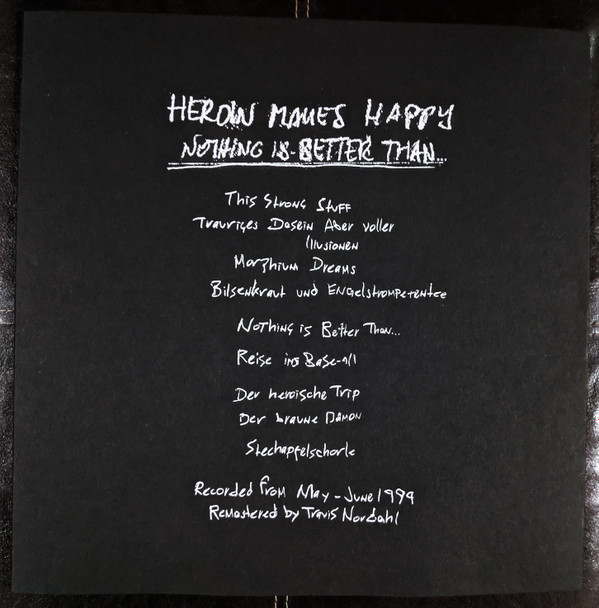 HEROIN MAKES HAPPY
NOTHING IS BETTER THAN...
This Strong Stuff
Trauriges Dasein Aber voller
Illusionen
Morphium Dreams
Bilsenkraut und Engelstrompetentee
Nothing is Better Than...
Reise ins Base-all
Der heroische Trip
Der braune Dämon
Stechapfelschorle
Recorded from May - June 1999
Remastered by Travis Nordahl